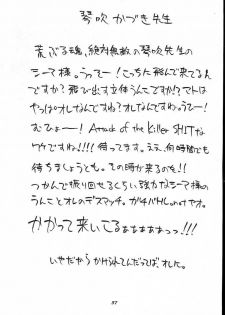 琴吹かづき先生
荒ぶる魂、絶対無敵の琴吹先生の
シーマ様。うってー!こっちに飛んで来てるん
ですか?飛び出す立体うんちですか?マトは
やっぱオレなんですね?オレなんですねっ。うてー!
むひょー!Attack of the Killer SHITな
ワケですね!!!!待ってます。ええ、何時間でも
待ちましょうとも。その時が来るのを!!
つかんで振り回せるくらい強力なシーマ様の
うんことオレのデスマッチ。ガチバトル。notヤオ。
かかって来いてるぁぁぁぁぁっっ!!!
いやだからかけられてんだってば。オレに。
37